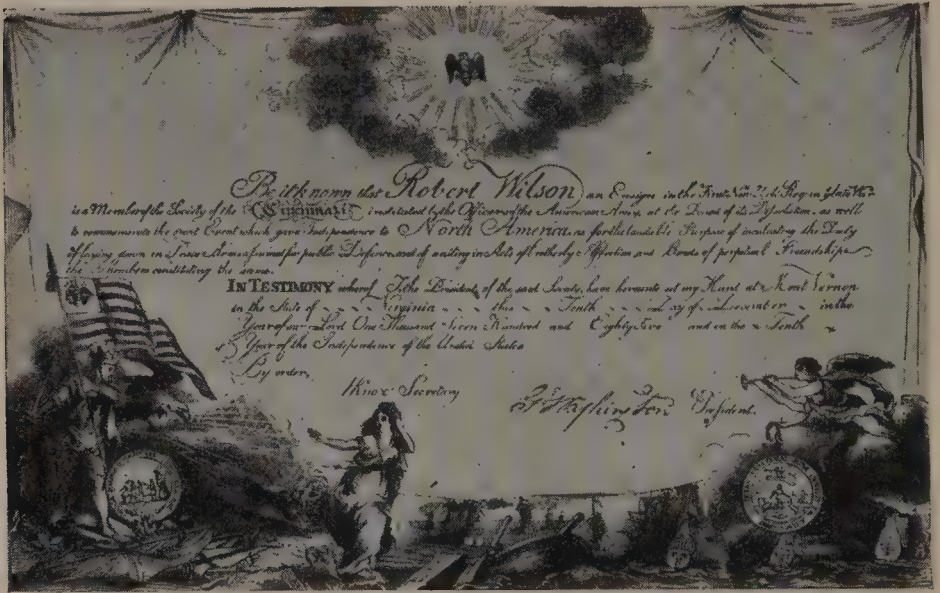 Be it known that Robert Wilson an Ensign in the First New York Regim.t late War
is a Member of the Society of the Cincinnati instituted by the Officers of the American Army, at the Period of its Dissolution, as well
to commemorate the great Event which gave Independence to North America, as for the laudable Purpose of inculcating the Duty
of laying down in Peace Arms assumed for public Defence, and of uniting in Acts of brotherly Affection and Bonds of perpetual Friendship,
the Members constituting the same.
IN TESTIMONY whereof I, the President of the said Society, have hereunto set my Hand at Mount Vernon
in the State of Virginia this Tenth Day of December in the
Year of our Lord One Thousand Seven Hundred and Eighty Five and in the Tenth
Year of the Independence of the United States.
By order,
HKnox Secretary
G.Washington President.